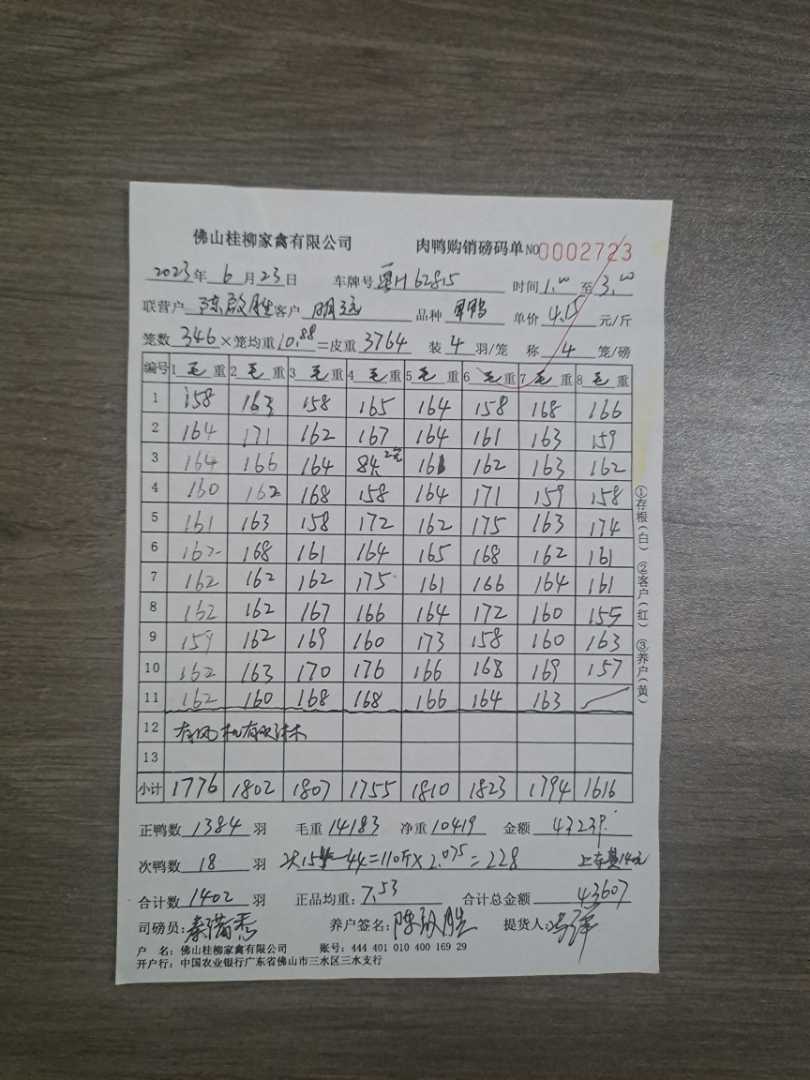 佛山桂柳家禽有限公司 肉鸭购销磅码单 NO 0002723
2023年 6月23日 车牌号 粤H62815 时间 1.00 至 3.00
联营户 陈启胜 客户 明记 品种 单价 4.15 元/斤
笼数 346 ×笼均重 10.88 =皮重 3764 装 4 羽/笼 称 4 笼/磅
编号 1 毛重 2 毛重 3 毛重 4 毛重 5 毛重 6 毛重 7 毛重 8 毛重
1 158 163 158 165 164 158 168 166
2 164 171 162 167 164 161 163 159
3 164 166 164 84 2笼 161 162 163 162
4 160 162 168 158 164 171 159 158
5 161 163 158 172 162 175 163 174
6 162 168 161 164 165 168 162 161
7 162 162 162 175 161 166 164 161
8 162 162 167 166 164 172 160 155
9 159 162 169 160 173 158 160 163
10 162 163 170 176 166 168 169 157
11 162 160 168 168 166 164 163
12 有风机有吹淋水
13
小计 1776 1802 1807 1755 1810 1823 1794 1616
正鸭数 1384 羽 毛重 14183 净重 10419 金额 43239.
次鸭数 18 羽 次15 44=110斤×2.075=228 上车费140元
合计数 1402 羽 正品均重: 7.53 合计总金额 43607
司磅员: 养户签名: 陈启胜 提货人:
户 名: 佛山桂柳家禽有限公司 账号: 444 401 010 400 169 29
开户行: 中国农业银行广东省佛山市三水区三水支行
①存根(白) ②客户(红) ③养户(黄)